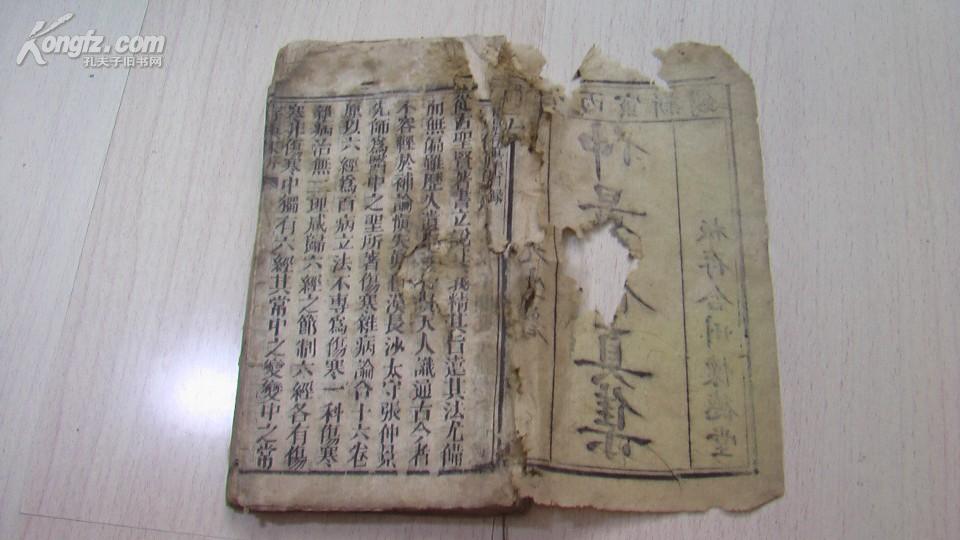 Kongfz.com
孔夫子旧书网
新
寅丙
仲景真集
板存合州懷德堂
古聖賢著書立說精其旨造其法尤備
而無偏雖歷久人人識通古今者
不容輕於補論漢長沙太守張仲景
先師爲醫中之聖所著傷寒雜病論合十六卷
原以六經爲百病立法不專爲傷寒一科傷寒
雜病治無二理咸歸六經之節制六經各有傷
寒非傷寒中獨有六經其常中之變變中之常